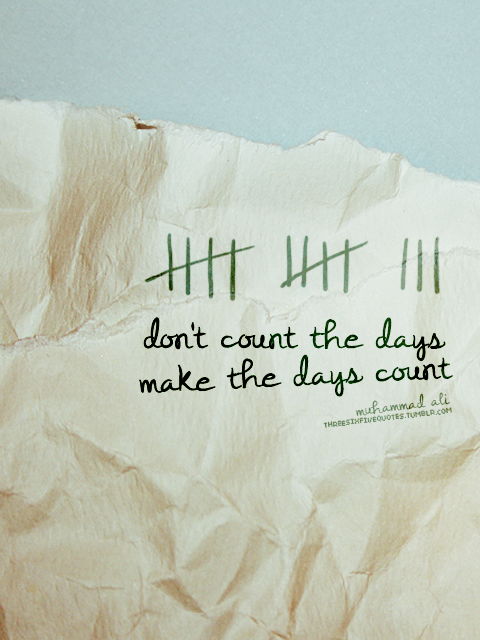 don't count the days
make the days count
muhammad ali
THREESIXFIVEQUOTES.TUMBLR.COM